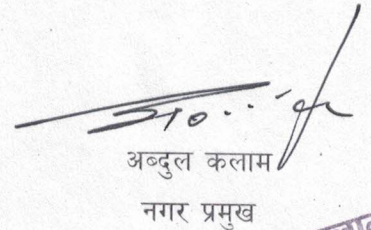 अब्दुल कलाम
नगर प्रमुख